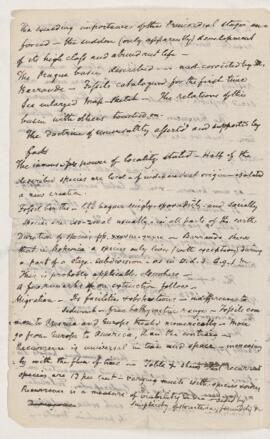 The unending importance of the Primordial stages en-
forced – the sudden (only apparently) development
of its high class and abundant life –
The Prague basin described – and corrected by M.
Barrande – Fossils catalogued for the first time
See enlarged Map-Sketch – The relations of this
basin with others touched on –
The doctrine of universality asserted and supported by
facts
The immense power of locality stated – Half of the
described species are local – of independent origin – related
a new creation.
Fossil centres – The vague, singly, sporadically, and socially
Species are co-ordinal usually – in all parts of the earth
Duration of species – Barrande shows
that in Bohemia a species only lives (with exceptions) during
a part of a stage-subdivision – as in D.d. 1 E.g.1 &c
This is probably applicable elsewhere –
A few remarks upon extinction follow –
Migration – Its facilities & obstructions – indifference to
Sediment – free bathymetric range – Fossils com-
mon to America and Europe traced numerically – More
go from Europe to America, than the contrary –
Recurrence is universal in time and space – increasing
by with the flow of time – Table & string that recurrent
species are 13 per cent – varying much with species orders
Recurrence is a measure of viability &c – aided by
simplicity of structure, fecundity &c